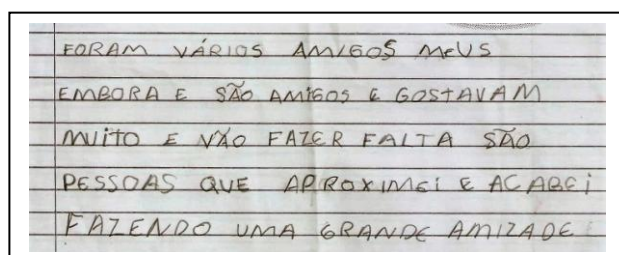 FORAM VÁRIOS AMIGOS MEUS
EMBORA E SÃO AMIGOS E GOSTAVAM
MUITO E NÃO FAZER FALTA SÃO
PESSOAS QUE APROXIMEI E ACABEI
FAZENDO UMA GRANDE AMIZADE